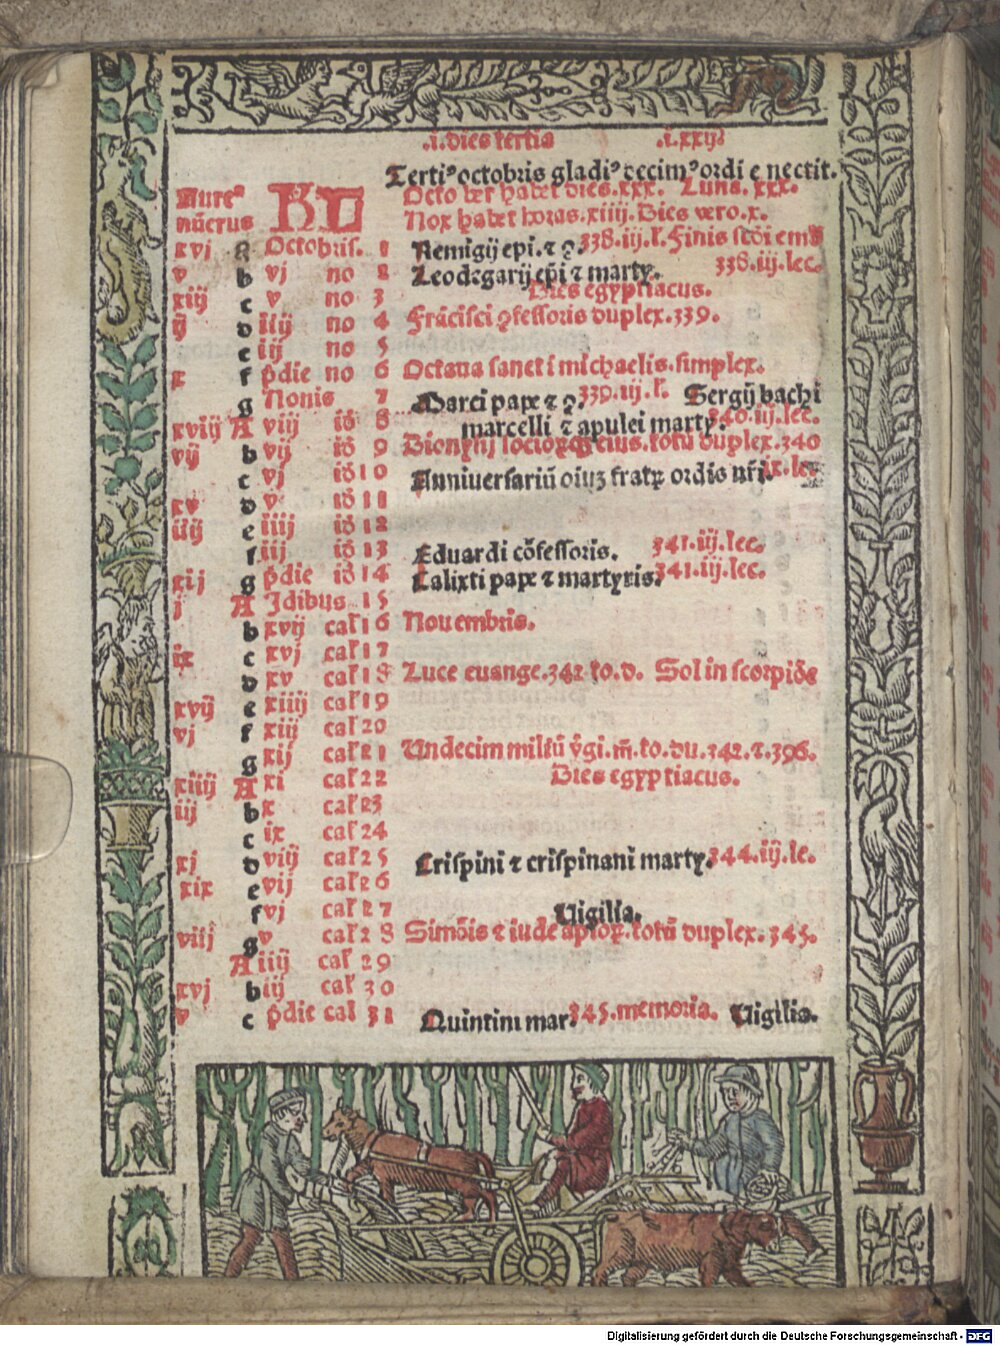 .i.dies tertia .i.xxij
Terti⁹ octobris gladi⁹ decim⁹ ordi e nectit.
Aure⁹ KL Octo ber habet dies.xxx. Luna. xxx.
nūerus Nox habet horas.xiiij. Dies vero.x.
xvj A Octobris. 1 Remigij epi. ⁊ ꝯ. 338.iij.l. Finis
v b vj no 2 Leodegarij epi ⁊ marty. 338.iij.lec.
xiij c v no 3 Dies egyptiacus.
ij d iiij no 4 Frācisci ꝯfessoris duplex.339.
e iij no 5
x f pdie no 6 Octaua sanct i michaelis.simplex.
g Nonis 7 Marci pape ⁊ ꝯ. 339.iij.l. Sergij bachi
xviij A viij id 8 marcelli ⁊ apulei marty. 340.iij.lec.
vij b vij id 9 Dionysij socior eius.totū duplex.340
c vj id 10 Anniuersariū oiuz fratꝝ ordis nr̄i. ix.lec
xv d v id 11
iiij e iiij id 12
f iij id 13 Eduardi cōfessoris. 341.iij.lec.
xij g pdie id 14 Calixti pape ⁊ martyris. 341.iij.lec.
j A Idibus 15
b xvij cal 16 Nouembris.
ix c xvj cal 17
d xv cal 18 Luce euange.342.to.d. Sol in scorpiōe
xvij e xiiij cal 19
vj f xiij cal 20
g xij cal 21 Undecim miliū v̄gi.m̄.to.du.342.⁊.396.
xiiij A xi cal 22 Dies egyptiacus.
iij b x cal 23
c ix cal 24
xj d viij cal 25 Crispini ⁊ crispinani marty. 344.iij.le.
xix e vij cal 26
f vj cal 27 Vigilia.
viij g v cal 28 Simōis ⁊ iude aptoꝝ.totū duplex.345.
A iiij cal 29
xvj b iij cal 30
v c pdie cal 31 Quintini mar. 345.memoria. Vigilia.
Digitalisierung gefördert durch die Deutsche Forschungsgemeinschaft - DFG